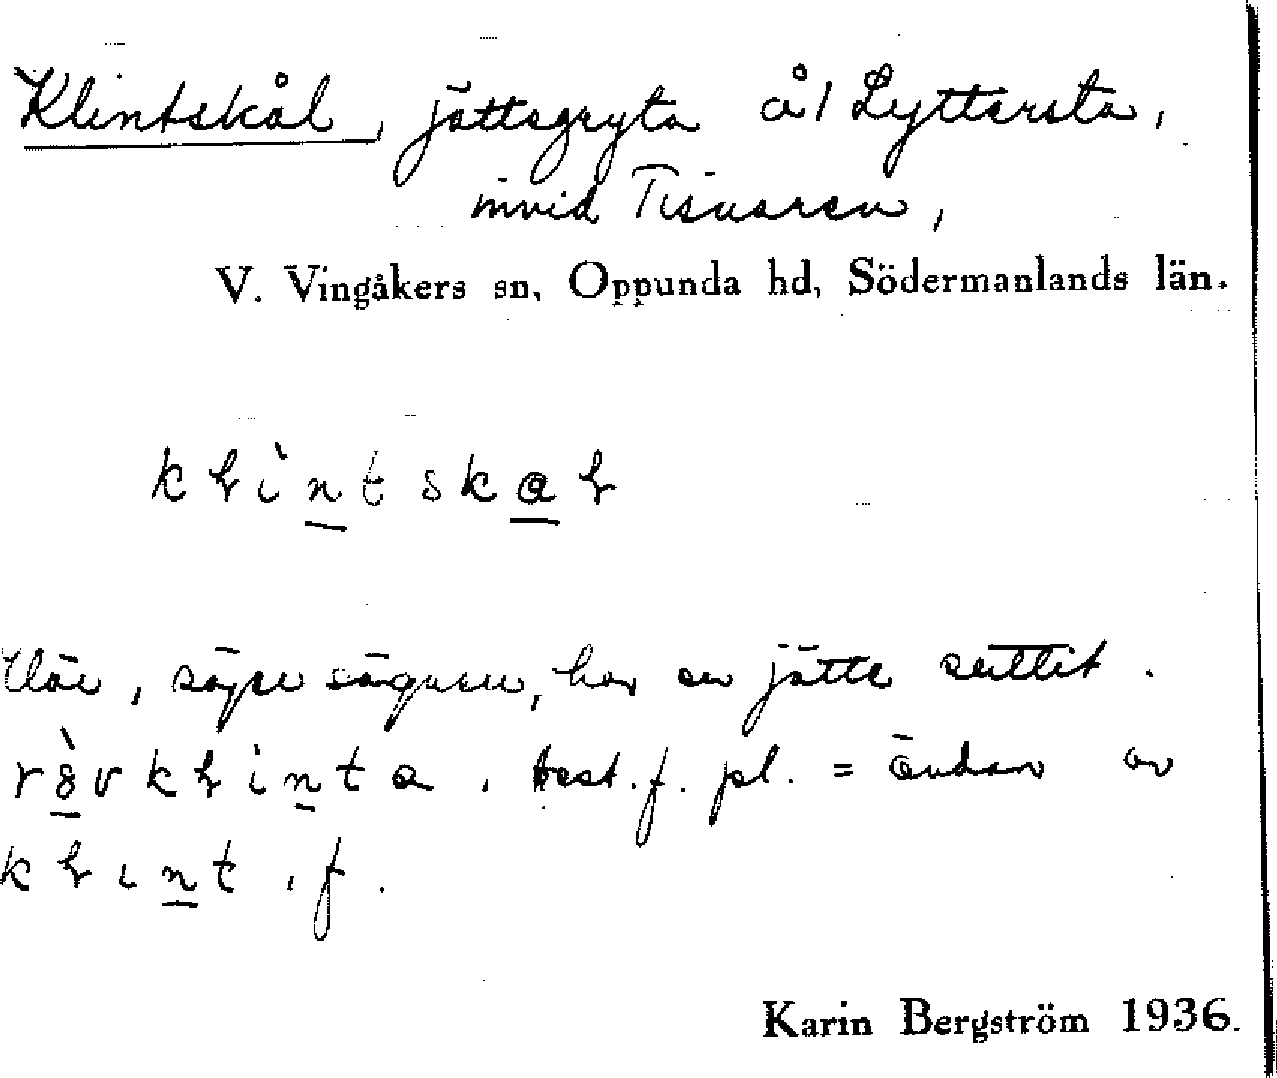 Klintskål, jättegryta å/ Lyttersta,
invid Tisnaren,
V. Vingåkers sn, Oppunda hd, Södermanlands län.
säger sägnen, har en jätte suttit.
best. f. pl. = ändan av
f.
Karin Bergström 1936.